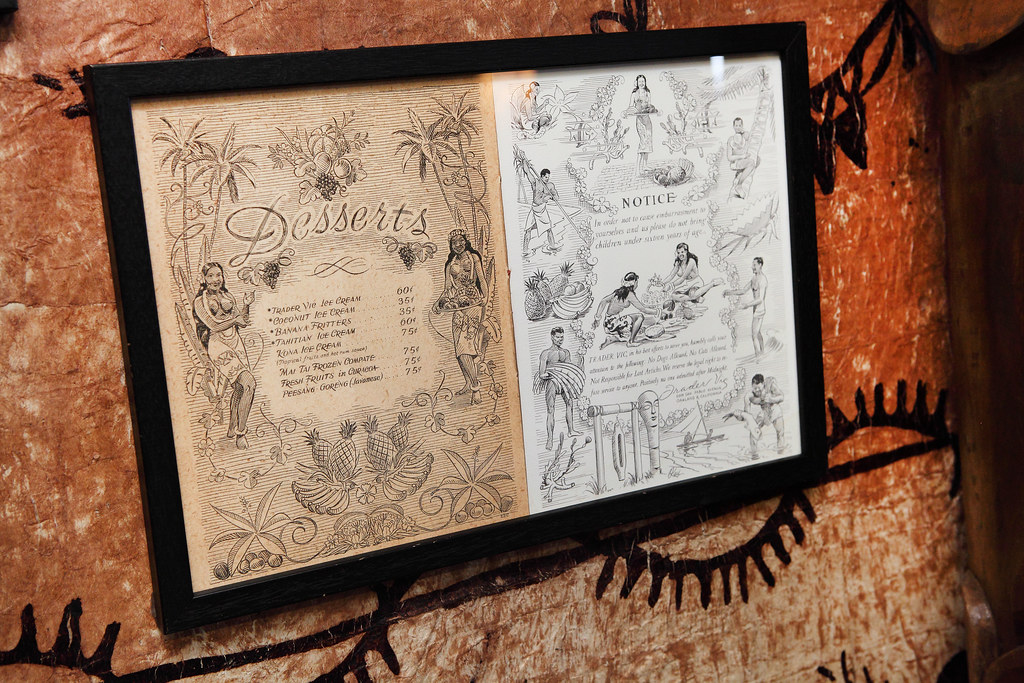 Desserts
•TRADER VIC ICE CREAM 60¢
•COCONUT ICE CREAM 35¢
•BANANA FRITTERS 35¢
•TAHITIAN ICE CREAM 60¢
KONA ICE CREAM 75¢
MAI TAI FROZEN COMPATE 75¢
FRESH FRUITS in CURACOA 75¢
PEESANG GORENG (Javanese) 75¢
NOTICE
In order not to cause embarrassment to
yourselves and us please do not bring
children under sixteen years of age..
TRADER VIC, in his best efforts to serve you, humbly calls your
attention to the following: No Dogs Allowed, No Cats Allowed,
Not Responsible for Lost Articles. We reserve the legal right to re-
fuse service to anyone. Positively no one admitted after Midnight.
Trader Vic